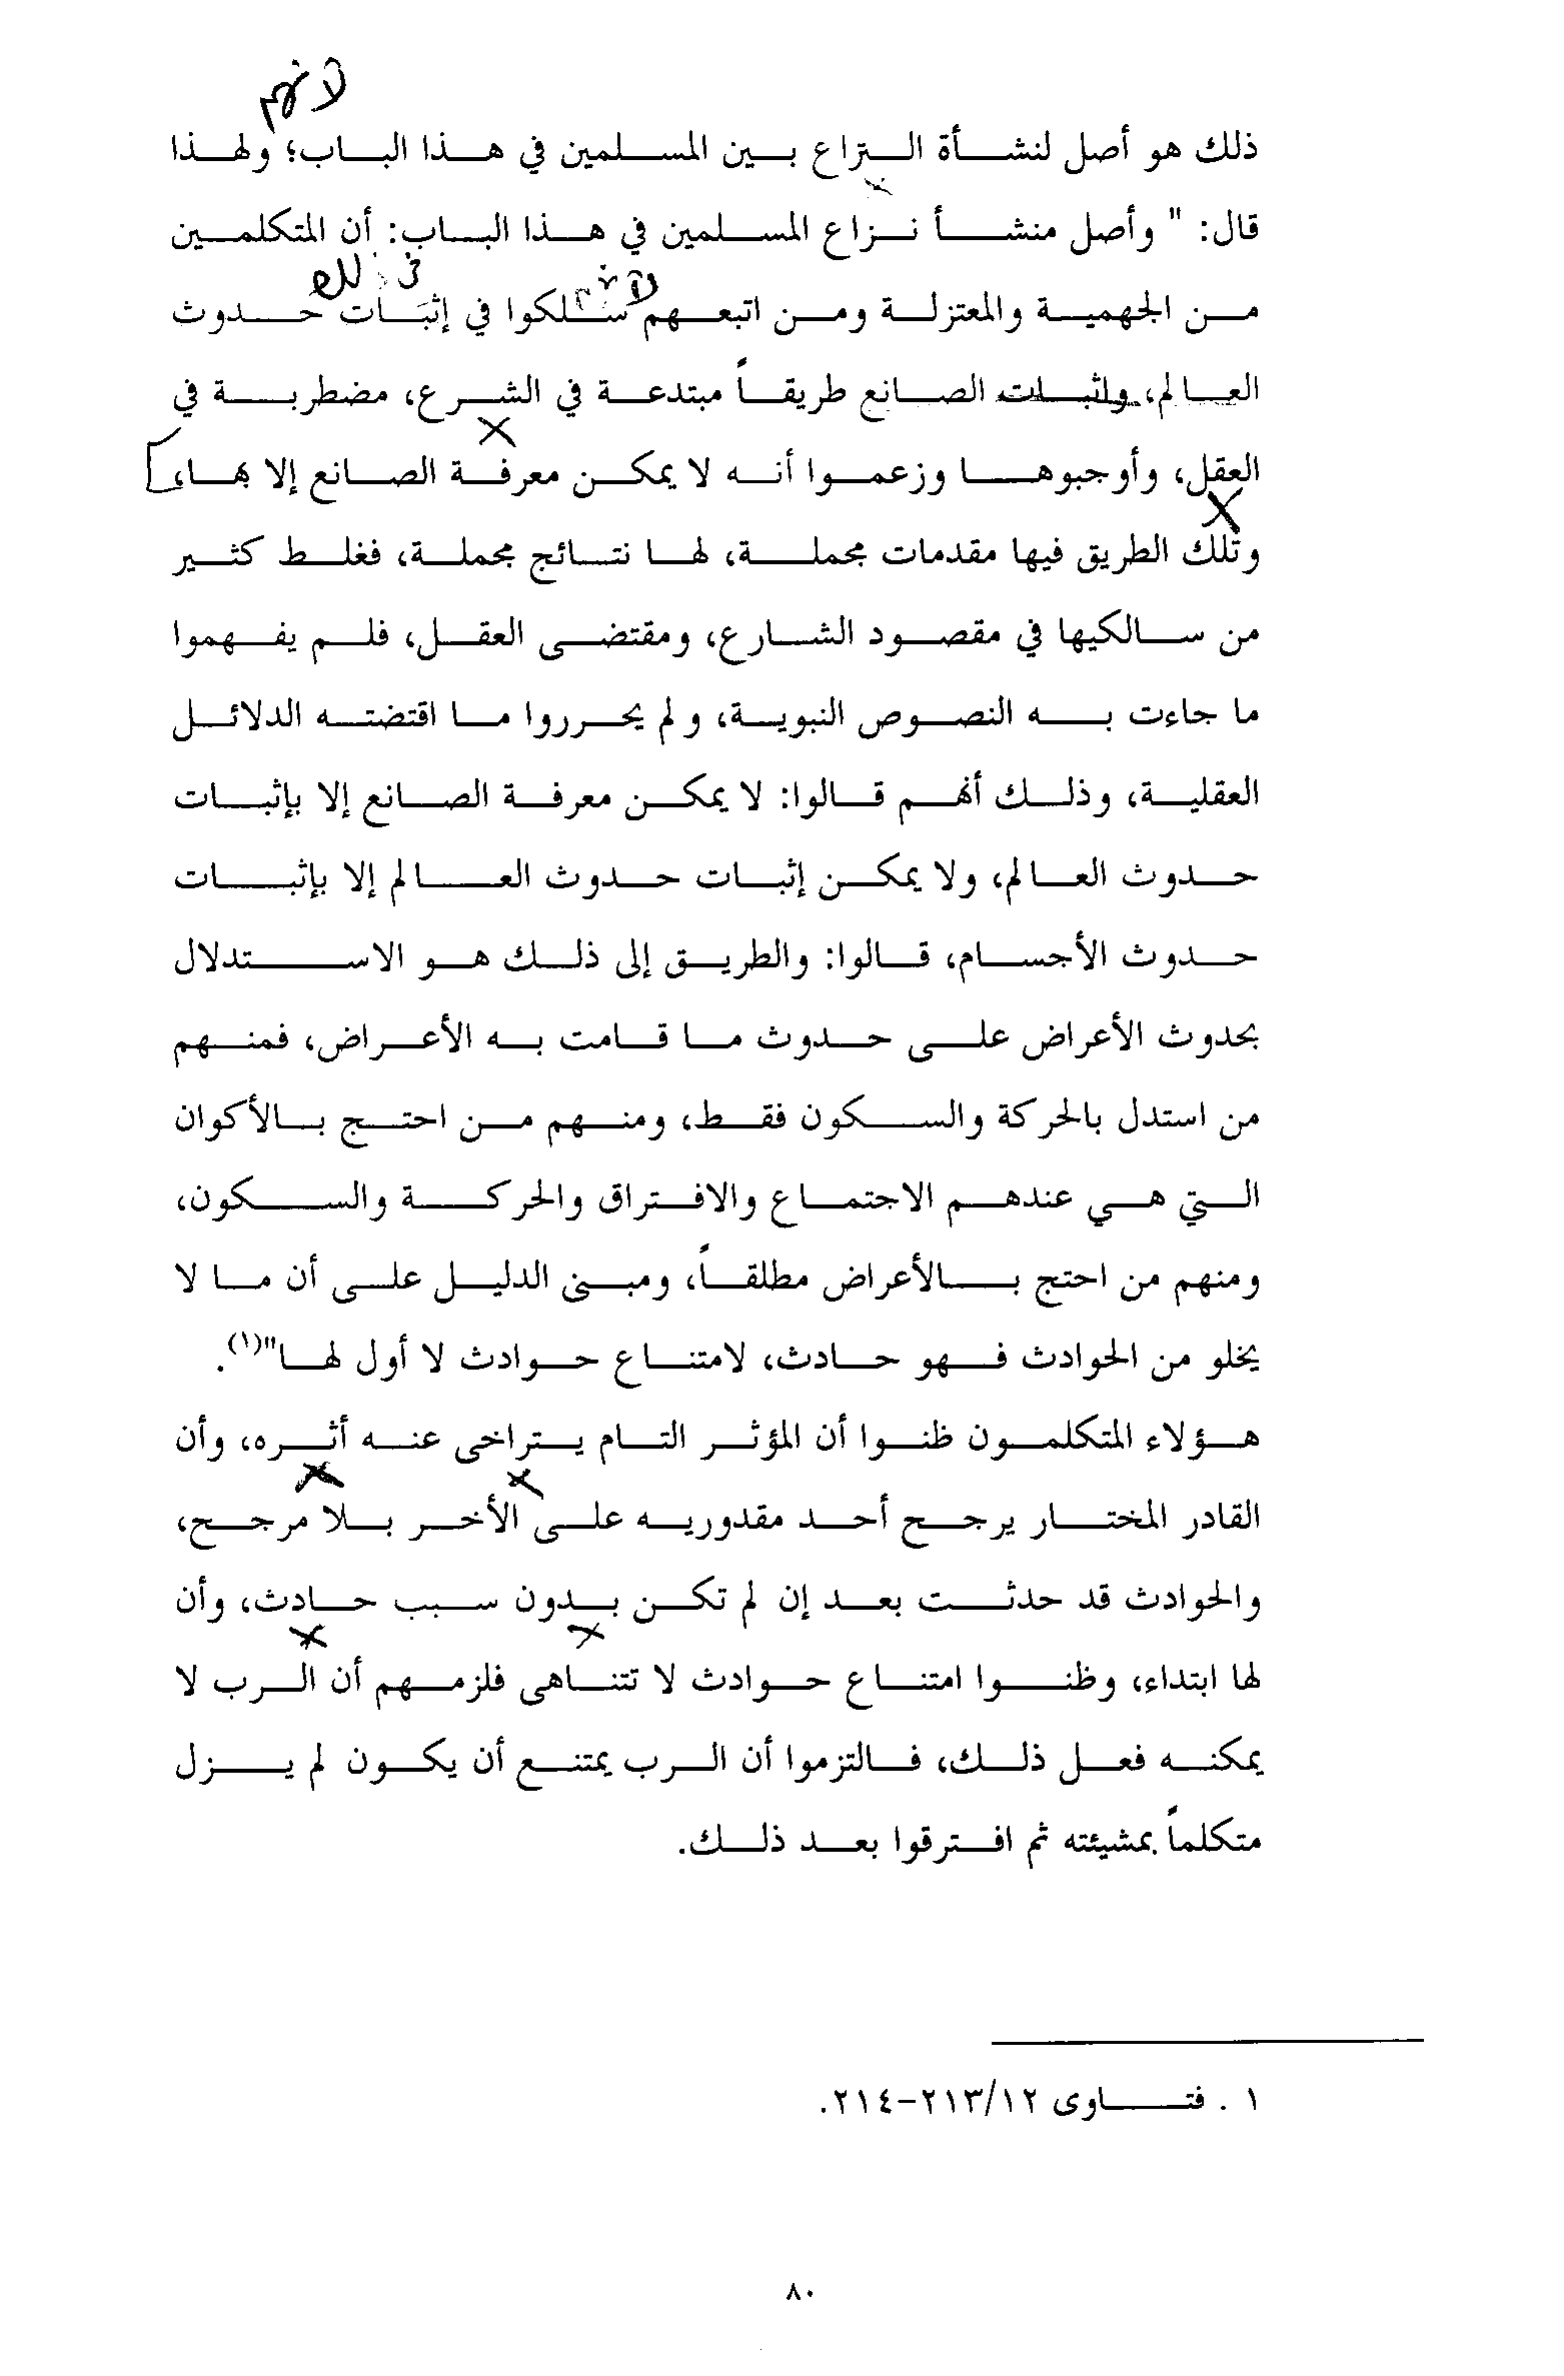 لانهم
ذلك هو أصل لنشأة النزاع بين المسلمين في هذا الباب؛ ولهذا
قال: " وأصل منشأ نزاع المسلمين في هذا الباب: أن المتكلمين
من الجهمية والمعتزلة ومن اتبعهم سلكوا في إثبات حدوث
العالم، واثبات الصانع طريقاً مبتدعة في الشرع، مضطربة في
العقل، وأوجبوها وزعموا أنه لا يمكن معرفة الصانع إلا بها،
وتلك الطريق فيها مقدمات مجملة، لها نتائج مجملة، فغلط كثير
من سالكيها في مقصود الشارع، ومقتضى العقل، فلم يفهموا
ما جاءت به النصوص النبوية، ولم يحرروا ما اقتضته الدلائل
العقلية، وذلك أنهم قالوا: لا يمكن معرفة الصانع إلا بإثبات
حدوث العالم، ولا يمكن إثبات حدوث العالم إلا بإثبات
حدوث الأجسام، قالوا: والطريق إلى ذلك هو الاستدلال
بحدوث الأعراض على حدوث ما قامت به الأعراض، فمنهم
من استدل بالحركة والسكون فقط، ومنهم من احتج بالأكوان
التي هي عندهم الاجتماع والافتراق والحركة والسكون،
ومنهم من احتج بالأعراض مطلقاً، ومبنى الدليل على أن ما لا
يخلو من الحوادث فهو حادث، لامتناع حوادث لا أول لها"(١).
هؤلاء المتكلمون ظنوا أن المؤثر التام يتراخى عنه أثره، وأن
القادر المختار يرجح أحد مقدوريه على الأخر بلا مرجح،
والحوادث قد حدثت بعد إن لم تكن بدون سبب حادث، وأن
لها ابتداء، وظنوا امتناع حوادث لا تتناهى فلزمهم أن الرب لا
يمكنه فعل ذلك، فالتزموا أن الرب يمتنع أن يكون لم يزل
متكلماً بمشيئته ثم افترقوا بعد ذلك.
١ . فتاوى ٢١٣/١٢-٢١٤.
٨٠